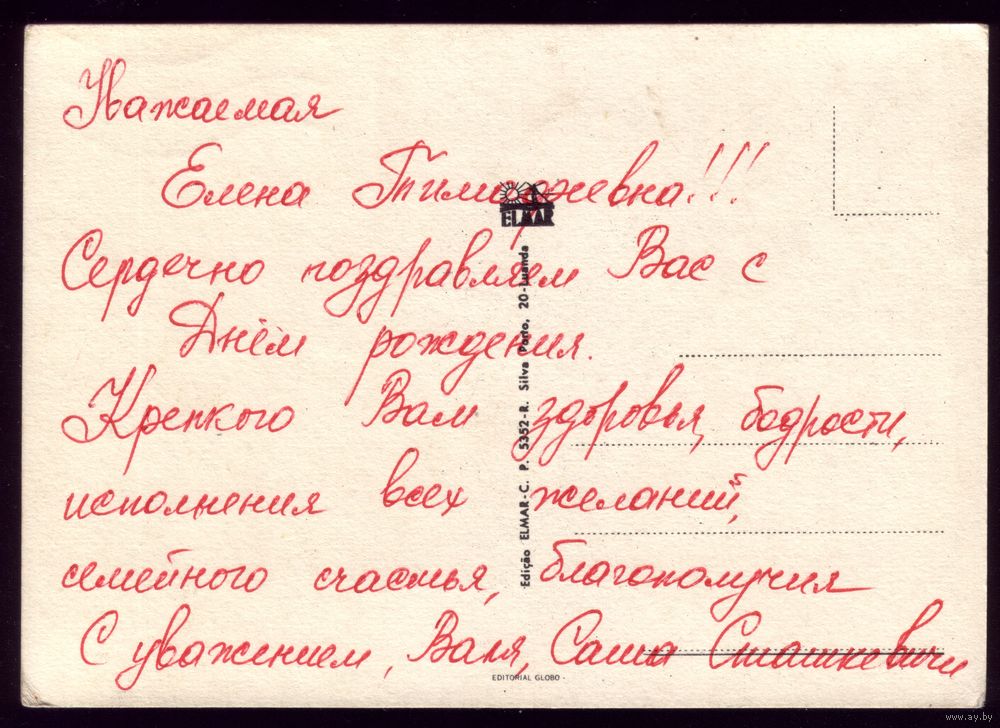 Уважаемая
Елена Тимофеевна!!!
Сердечно поздравляем Вас с
Днём рождения.
Крепкого Вам здоровья, бодрости,
исполнения всех желаний,
семейного счастья, благополучия
С уважением, Валя, Саша Сташкевичи
ELMAR
Edição ELMAR-C. P. 5352-R. Silva Porto, 20-Luanda
EDITORIAL GLOBO
www.ay.by